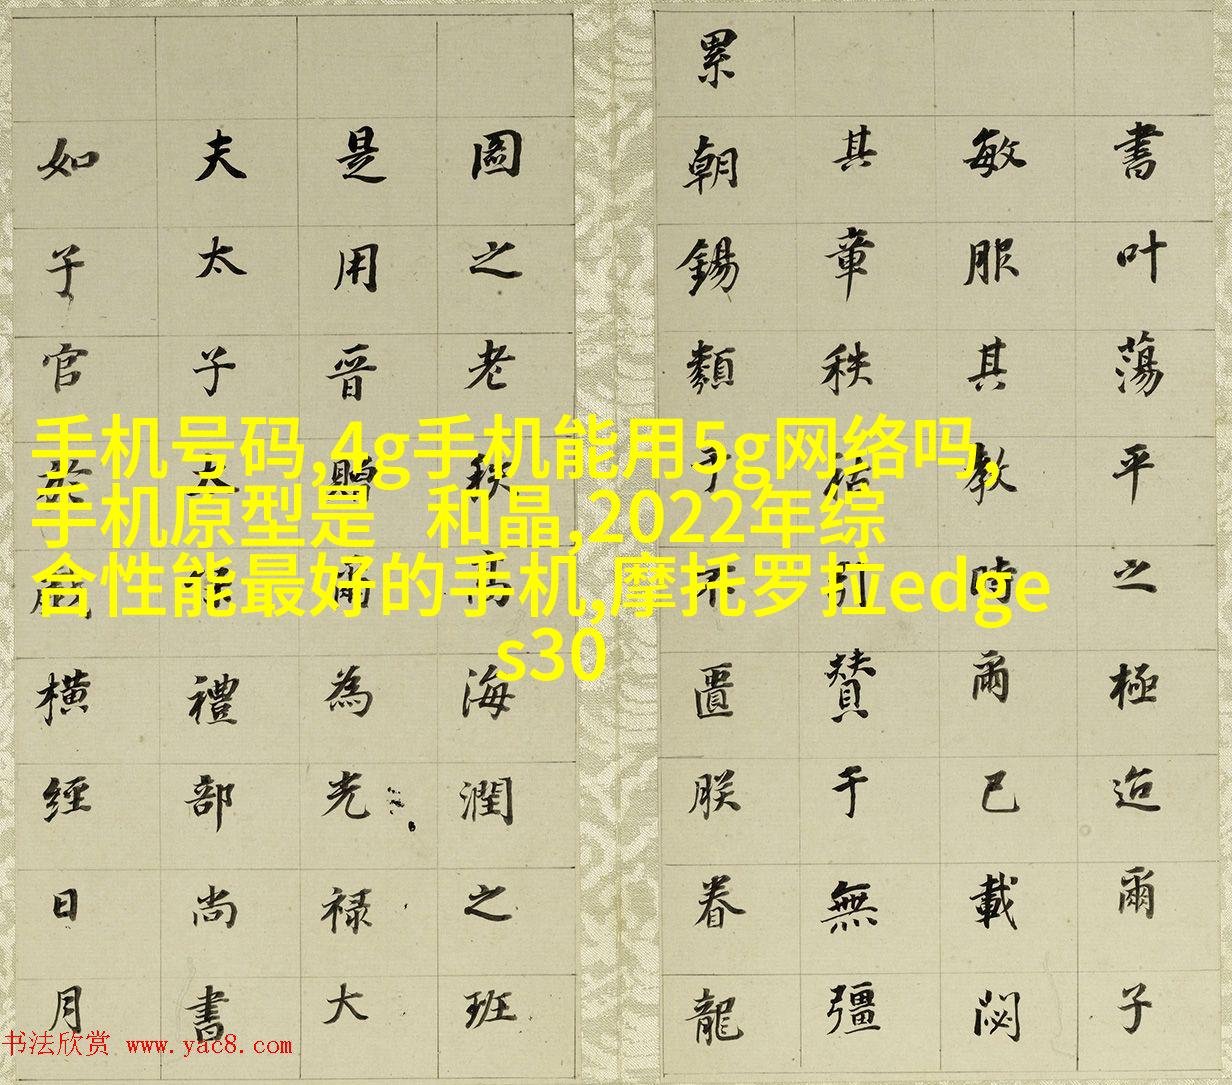 書叶蕩平之極迨爾子
敏服其教時爾已載閟
其章秩信引贊于無彊
累朝錫類于不匱朕眷龍
圖之老秩高海潤之班
是用晋贈爾為光禄大
夫太子太保禮部尚書
如子官於戲橫經日月
手机号码,4g手机能用5g网络吗,
手机原型是 和晶,2022年综
合性能最好的手机,摩托罗拉edge
s30
书法欣赏 www.yac8.com